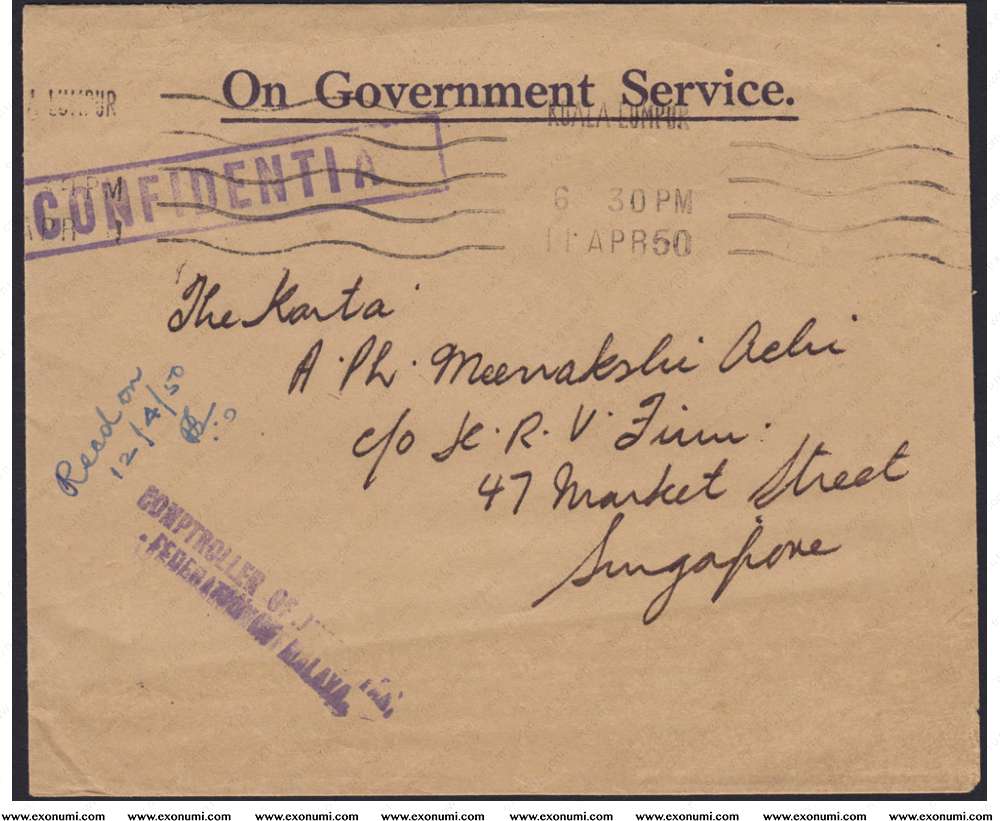 On Government Service.
LUMPUR
KUALA LUMPUR
CONFIDENTIA
PM
6 30 PM
APR
11 APR 50
The Karta
A. Ph. Meenakshi Achi
c/o K. R. V. Firm.
47 Market Street
Singapore
Recd on
12/4/50
COMPTROLLER OF
FEDERATION OF MALAYA.
www.exonumi.com www.exonumi.com www.exonumi.com www.exonumi.com www.exonumi.com www.exonumi.com www.exonumi.com www.exonumi.com